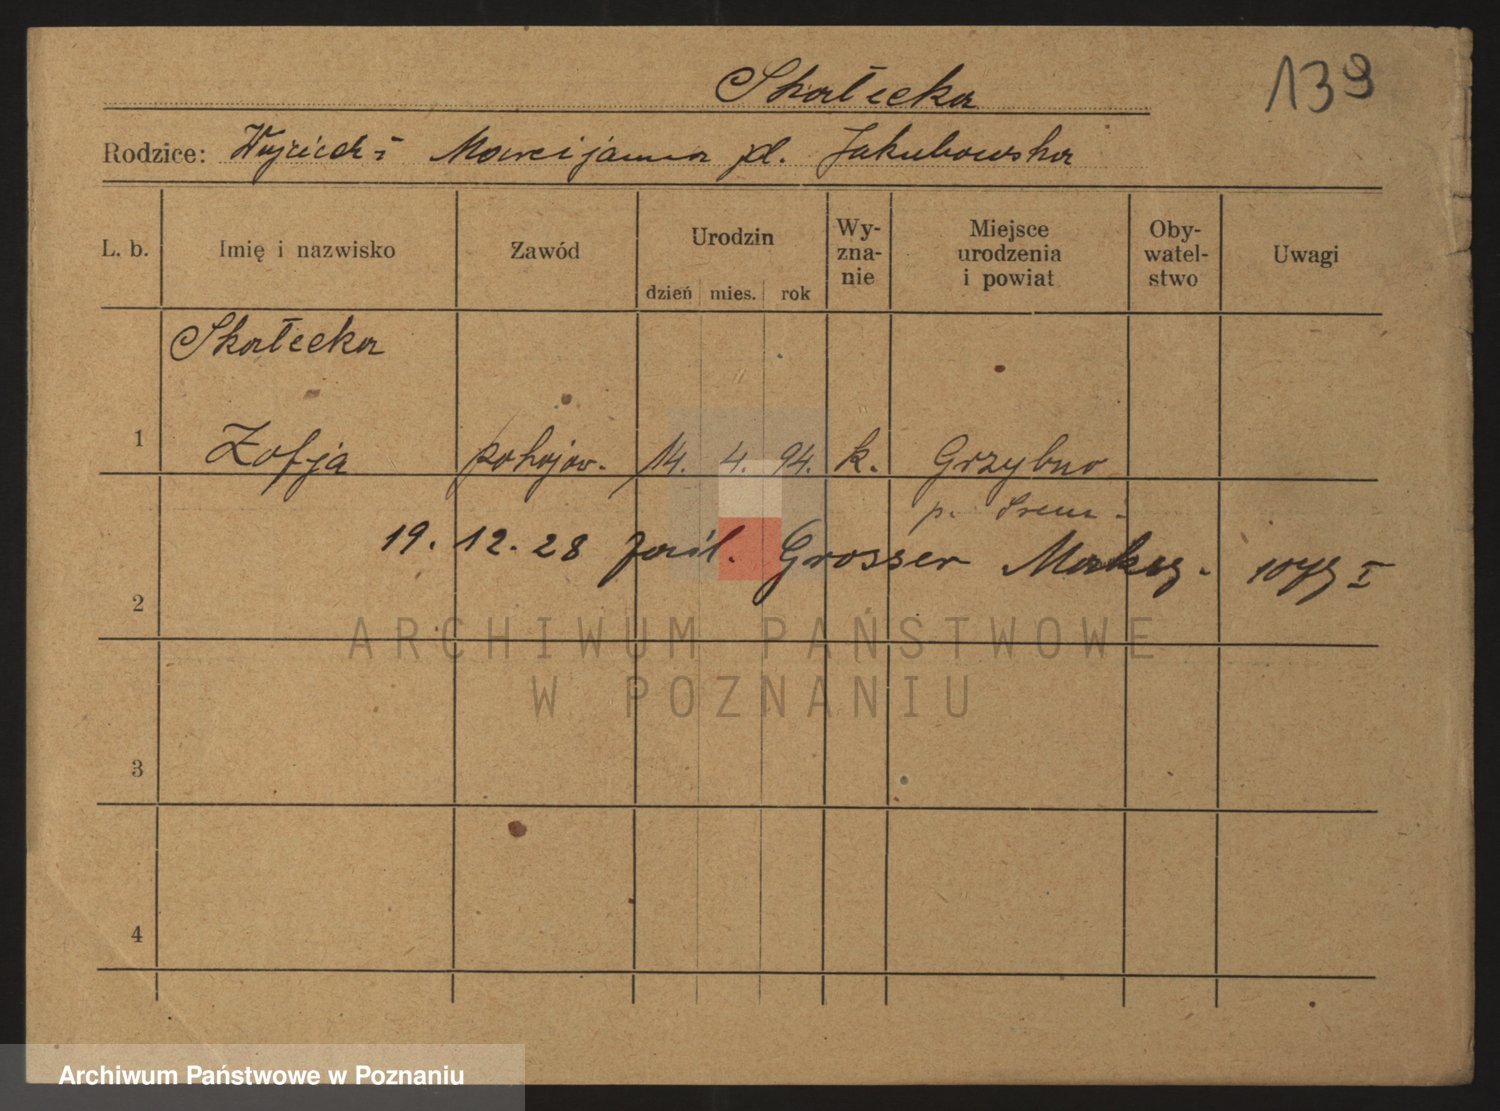 Skałecka
139
Rodzice: Wojciech i Marcijanna d. Jakubowska
L. b. Imię i nazwisko Zawód Urodzin dzień mies. rok Wy-
zna-
nie Miejsce
urodzenia
i powiat Oby-
watel-
stwo Uwagi
Skałecka
1 Zofja pokojow. 14. 4. 94. k. Grzybno
p. Śrem.
19. 12. 28 Grosser
2
3
4
ARCHIWUM PAŃSTWOWE
W POZNANIU
Archiwum Państwowe w Poznaniu